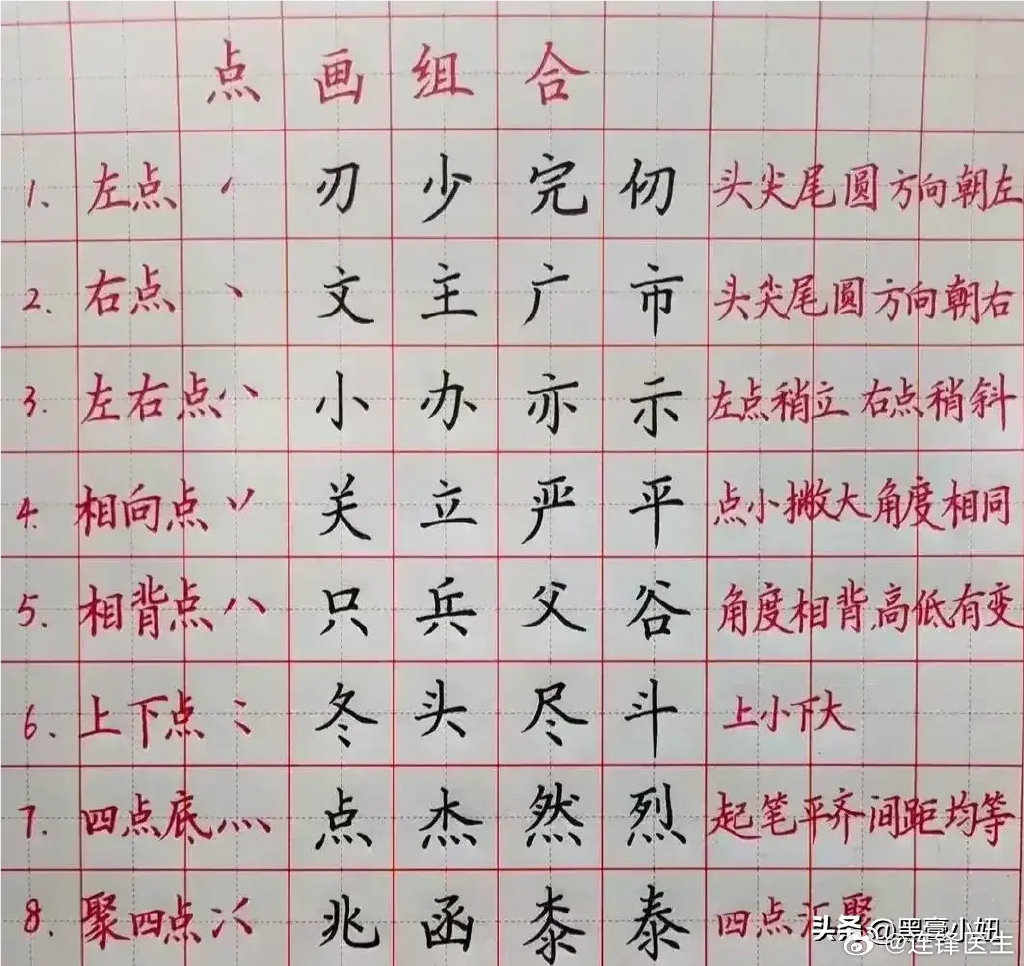 点画组合
1. 左点 刃 少 完 仞 头尖尾圆方向朝左
2. 右点 丶 文 主 广 市 头尖尾圆方向朝右
3. 左右点 小 办 亦 示 左点稍立 右点稍斜
4. 相向点 丷 关 立 严 平 点小撇大角度相同
5. 相背点 八 只 兵 父 谷 角度相背,高低有变
6. 上下点 冬 头 尽 斗 上小下大
7. 四点底 灬 点 杰 然 烈 起笔平齐间距均等
8. 聚四点 兆 函 泰 四点汇聚
头条 @黑亮小妞
@连锋医生